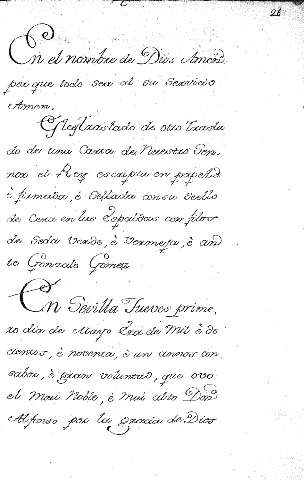 28
En el nombre de Dios Amen
por que todo sea al su Servicio
Amen.
Este traslado de otro trasla
do de una Carta de Nuestro Sen
nor el Rey escripta en papel
è firmada, è Sellada con su Sello
de Cera en las Espaldas con filos
de Seda Verde, è Vermeja, è an
te Gonzalo Gomez
En Sevilla Jueves prime,
ro dia de Marzo Era de Mil è do
cientos, è noventa, è un annos con
sabor, è gran voluntad, que ovo
el Mui Noble, è Mui alto Don
Alfonso por la gracia de Dios